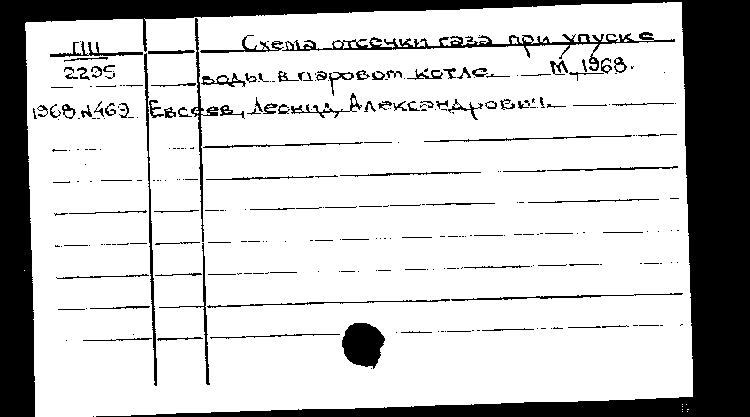 ПШ Схема отсечки газа при упуске
2295 воды в паровом котле. М, 1968.
1968 N469 Евсеев, Леонид Александрович.